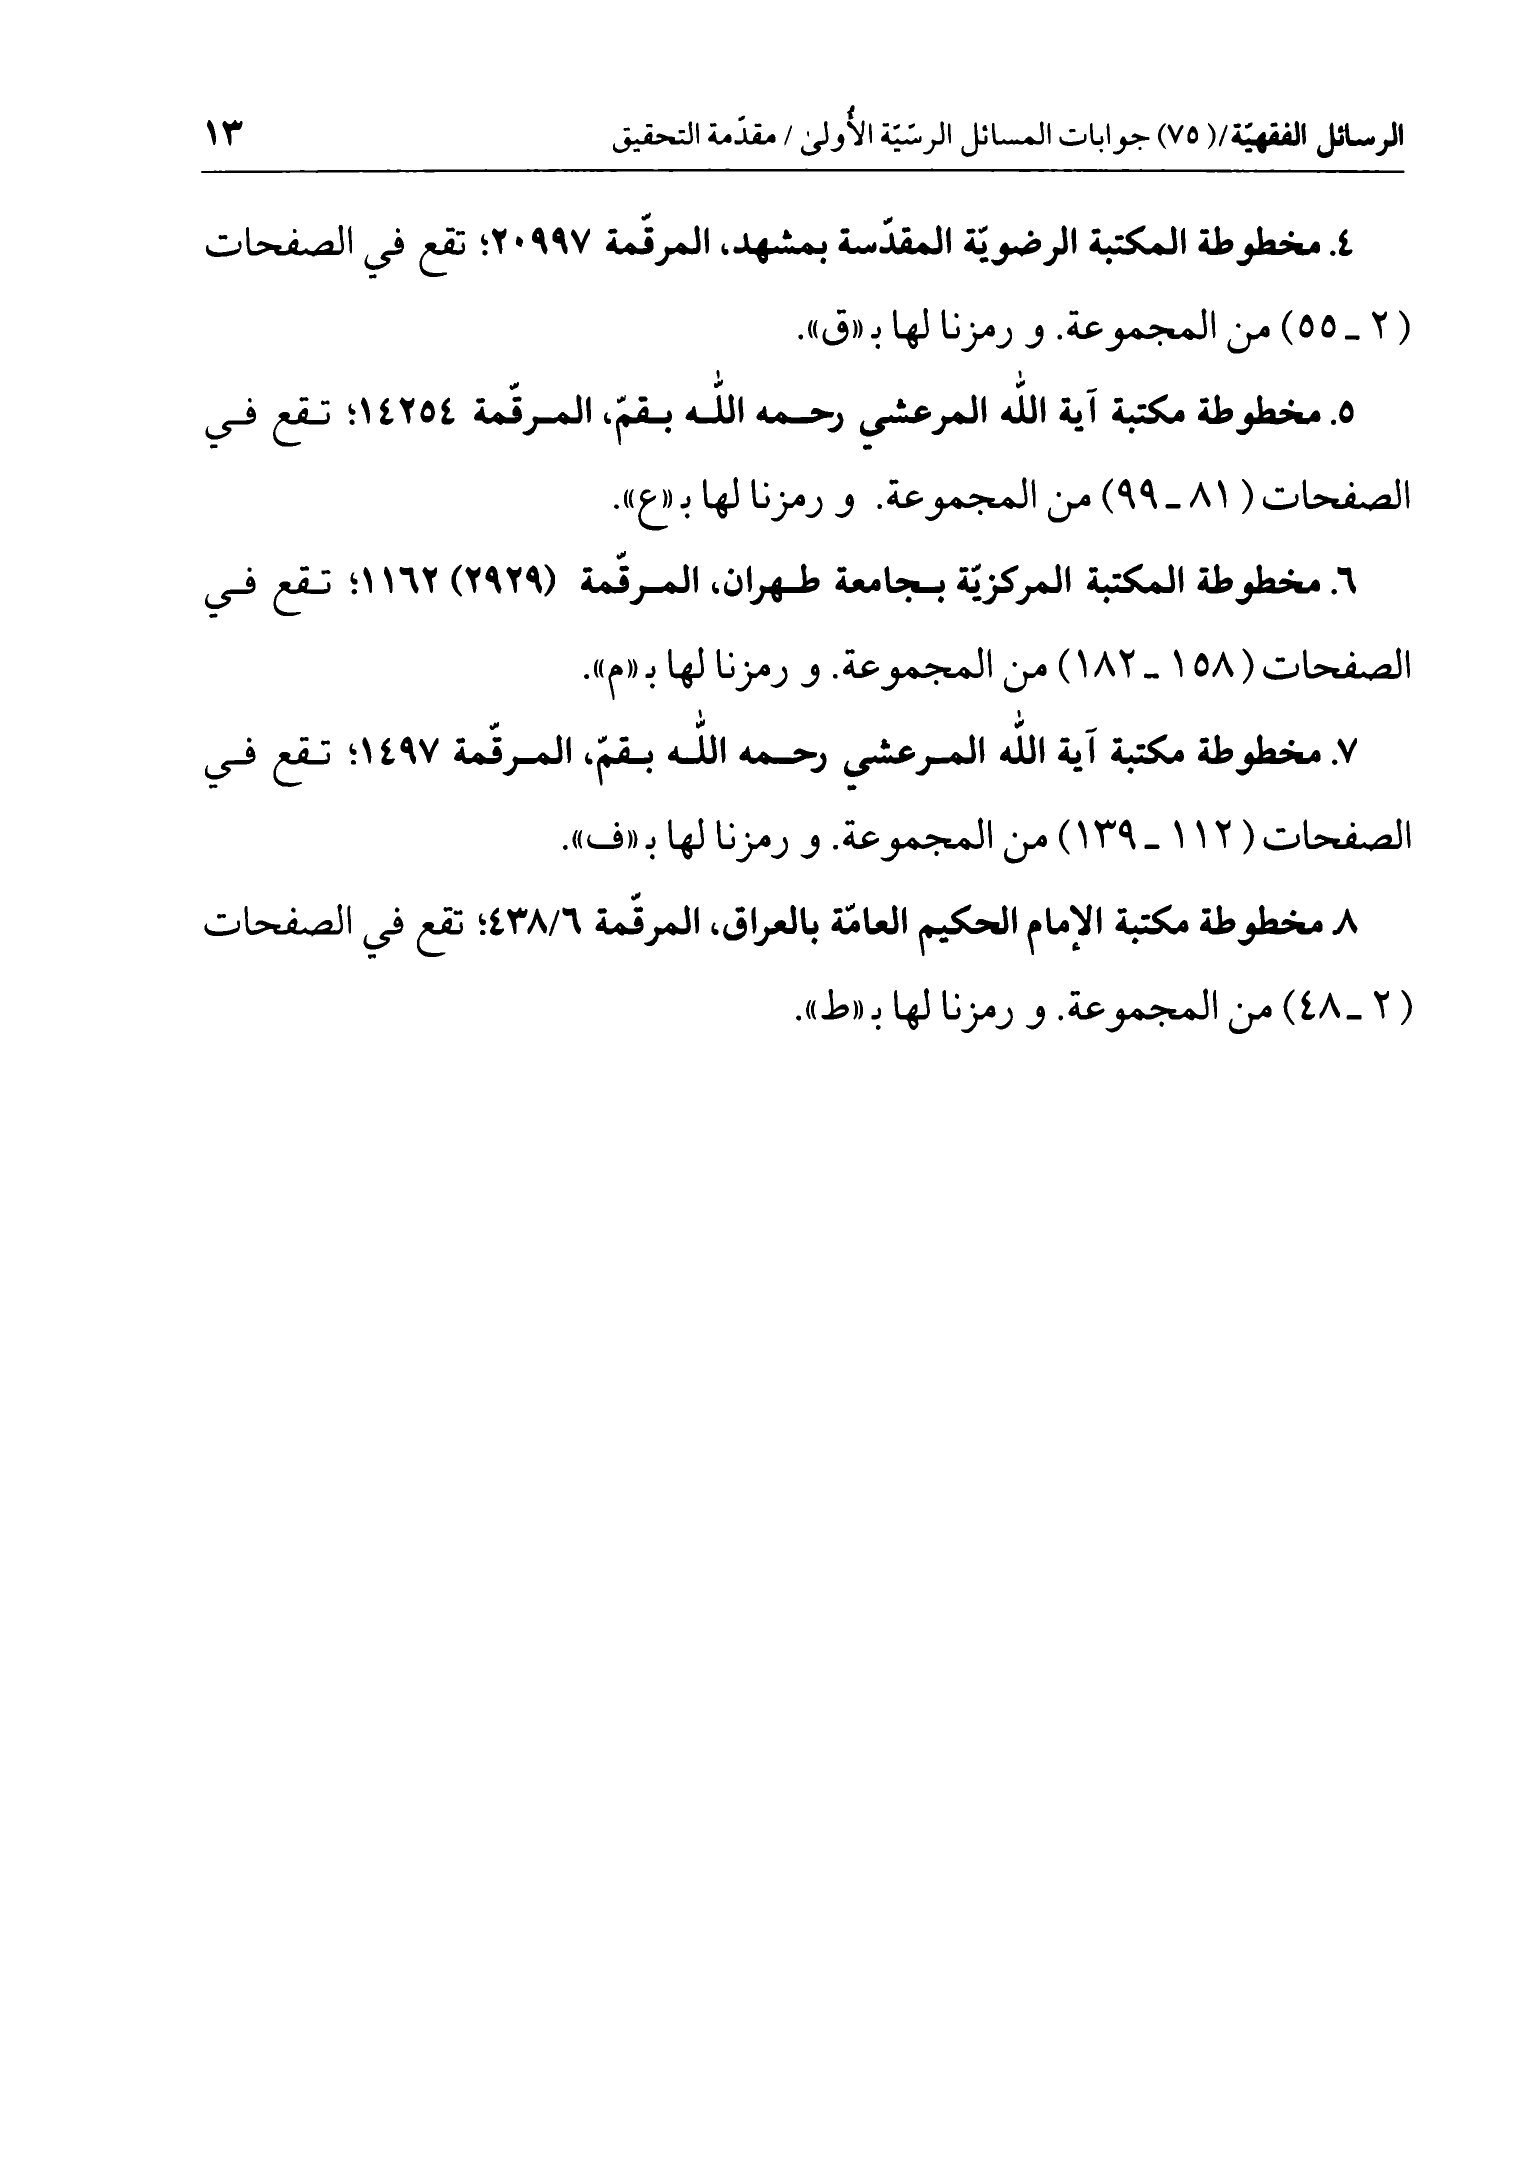 الرسائل الفقهيّة/(٧٥) جوابات المسائل الرسّيّة الأُولىٰ / مقدّمة التحقيق ١٣
٤. مخطوطة المكتبة الرضويّة المقدّسة بمشهد، المرقّمة ٢٠٩٩٧؛ تقع في الصفحات
(٢ ـ ٥٥) من المجموعة. و رمزنا لها بـ «ق».
٥. مخطوطة مكتبة آية اللّٰه المرعشي رحـمه اللّٰـه بـقمّ، المـرقّمة ١٤٢٥٤؛ تـقع فـي
الصفحات (٨١ ـ ٩٩) من المجموعة. و رمزنا لها بـ «ع».
٦. مخطوطة المكتبة المركزيّة بـجامعة طـهران، المـرقّمة (٢٩٢٩) ١١٦٢؛ تـقع فـي
الصفحات (١٥٨ ـ ١٨٢) من المجموعة. و رمزنا لها بـ «م».
٧. مخطوطة مكتبة آية اللّٰه المـرعشي رحـمه اللّٰـه بـقمّ، المـرقّمة ١٤٩٧؛ تـقع فـي
الصفحات (١١٢ ـ ١٣٩) من المجموعة. و رمزنا لها بـ «ف».
٨. مخطوطة مكتبة الإمام الحكيم العامّة بالعراق، المرقّمة ٤٣٨/٦؛ تقع في الصفحات
(٢ ـ ٤٨) من المجموعة. و رمزنا لها بـ «ط».